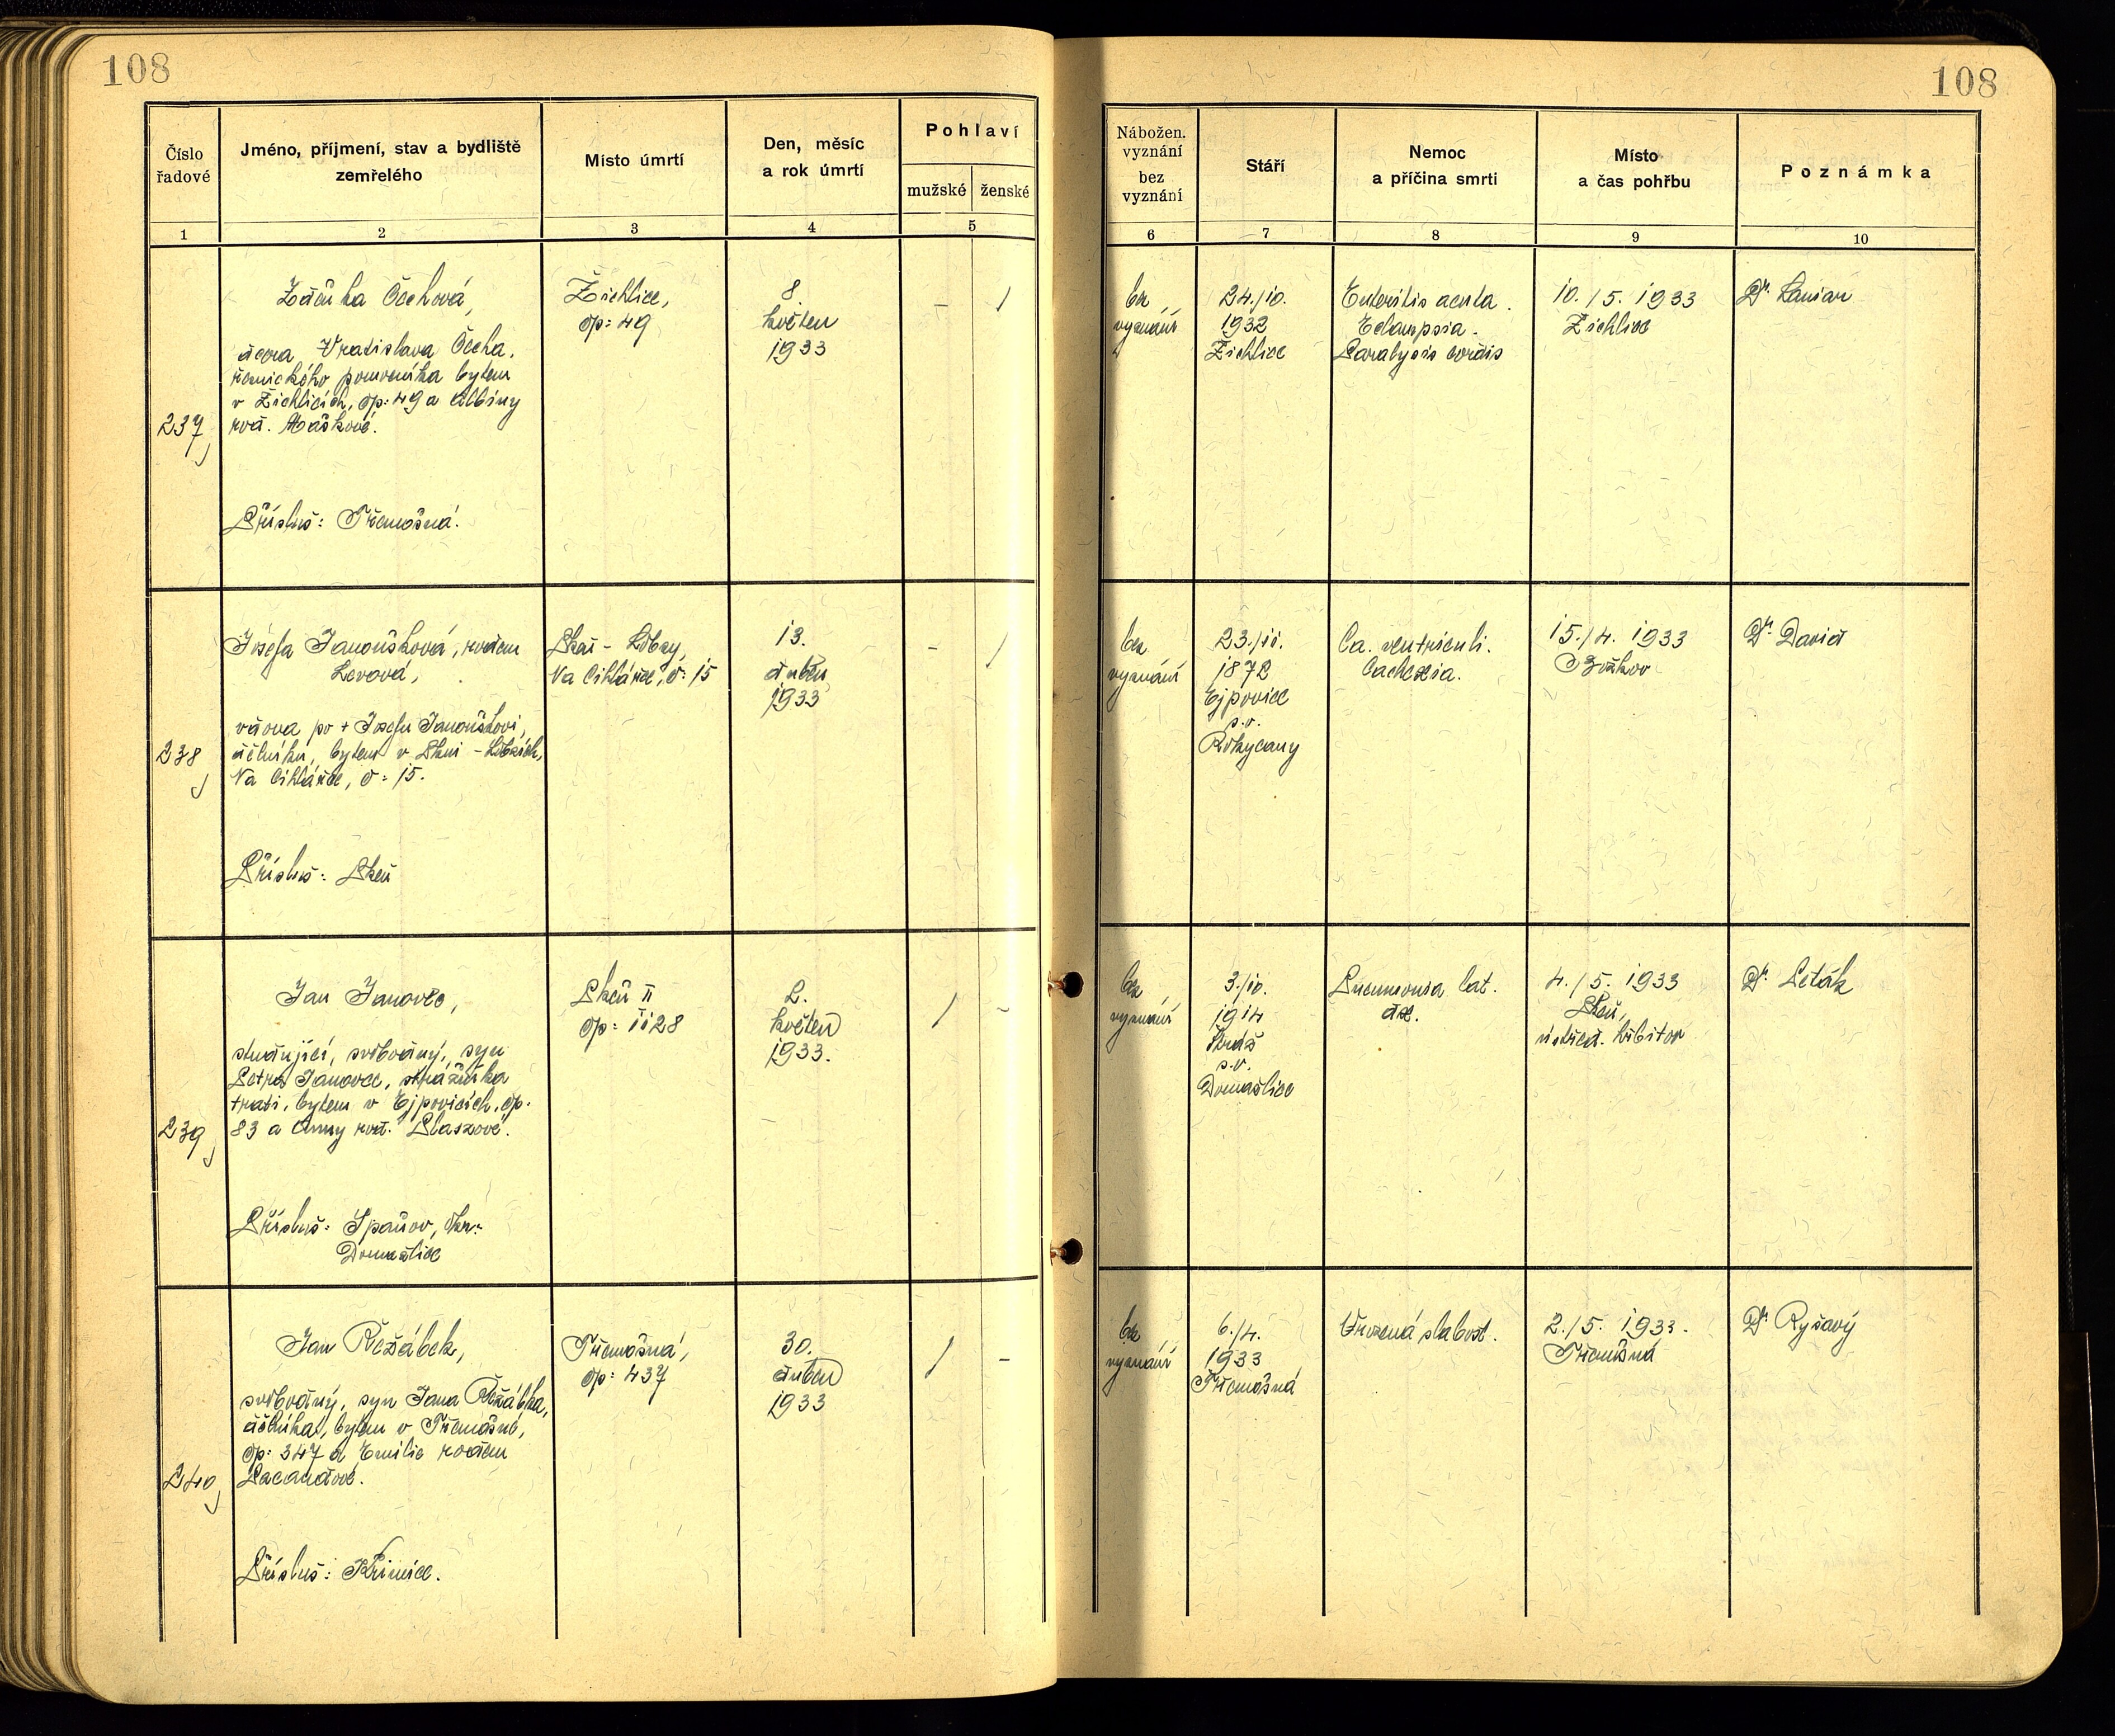 108
108
Číslo
řadové
Jméno, příjmení, stav a bydliště
zemřelého
Místo úmrtí
Den, měsíc
a rok úmrtí
Pohlaví
mužské
ženské
Nábožen.
vyznání
bez
vyznání
Stáří
Nemoc
a příčina smrti
Místo
a čas pohřbu
Poznámka
1
2
3
4
5
6
7
8
9
10
237
Zděnka Čechová,
dcera Vratislava Čecha,
řeznického pomocníka bytem
v Žichlicích, čp: 49 a Albíny
roz. Maškové.
Přísluš: Třemošná.
Žichlice,
čp: 49
8.
květen
1933
-
/
bez
vyznání
24./10.
1932
Žichlice
Enteritis acuta.
Eclampsia.
Paralysis cordis
10./5. 1933
Žichlice
Dr.
238
Josefa Janoušková, rodem
Levová,
vdova po + Josefu Janouškovi,
dělníku, bytem v Plzni - Lobzích,
Na Cihlářce, č: 15.
Přísluš: Plzeň
Plzeň - Lobzy,
Na Cihlářce, č: 15
13.
duben
1933
-
/
bez
vyznání
23./11.
1872
Ejpovice
s.o.
Rokycany
Ca. ventriculi.
Cachexia.
15./4. 1933
Božkov
Dr. David
239
Jan Janovec,
studující, svobodný, syn
Petra Janovce, strážníka
trati, bytem v Ejpovicích, čp.
83 a Anny roz.
Přísluš: Spáňov, okr:
Domažlice
Plzeň II
čp: 1128
2.
květen
1933.
/
-
bez
vyznání
3./10.
1914
Stráž
s.o.
Domažlice
Pneumonia lat.
dx.
4./5. 1933
Plzeň,
ústřed. hřbitov
Dr. Leták
240
Jan Řežábek,
svobodný, syn Jana Řežábka,
dělníka, bytem v Třemošné,
čp: 347 a Emilie rodem
Přísluš: Křimice.
Třemošná,
čp: 437
30.
duben
1933
/
-
bez
vyznání
6./4.
1933
Třemošná
Vrozená slabost.
2./5. 1933.
Třemošná
Dr Ryšavý